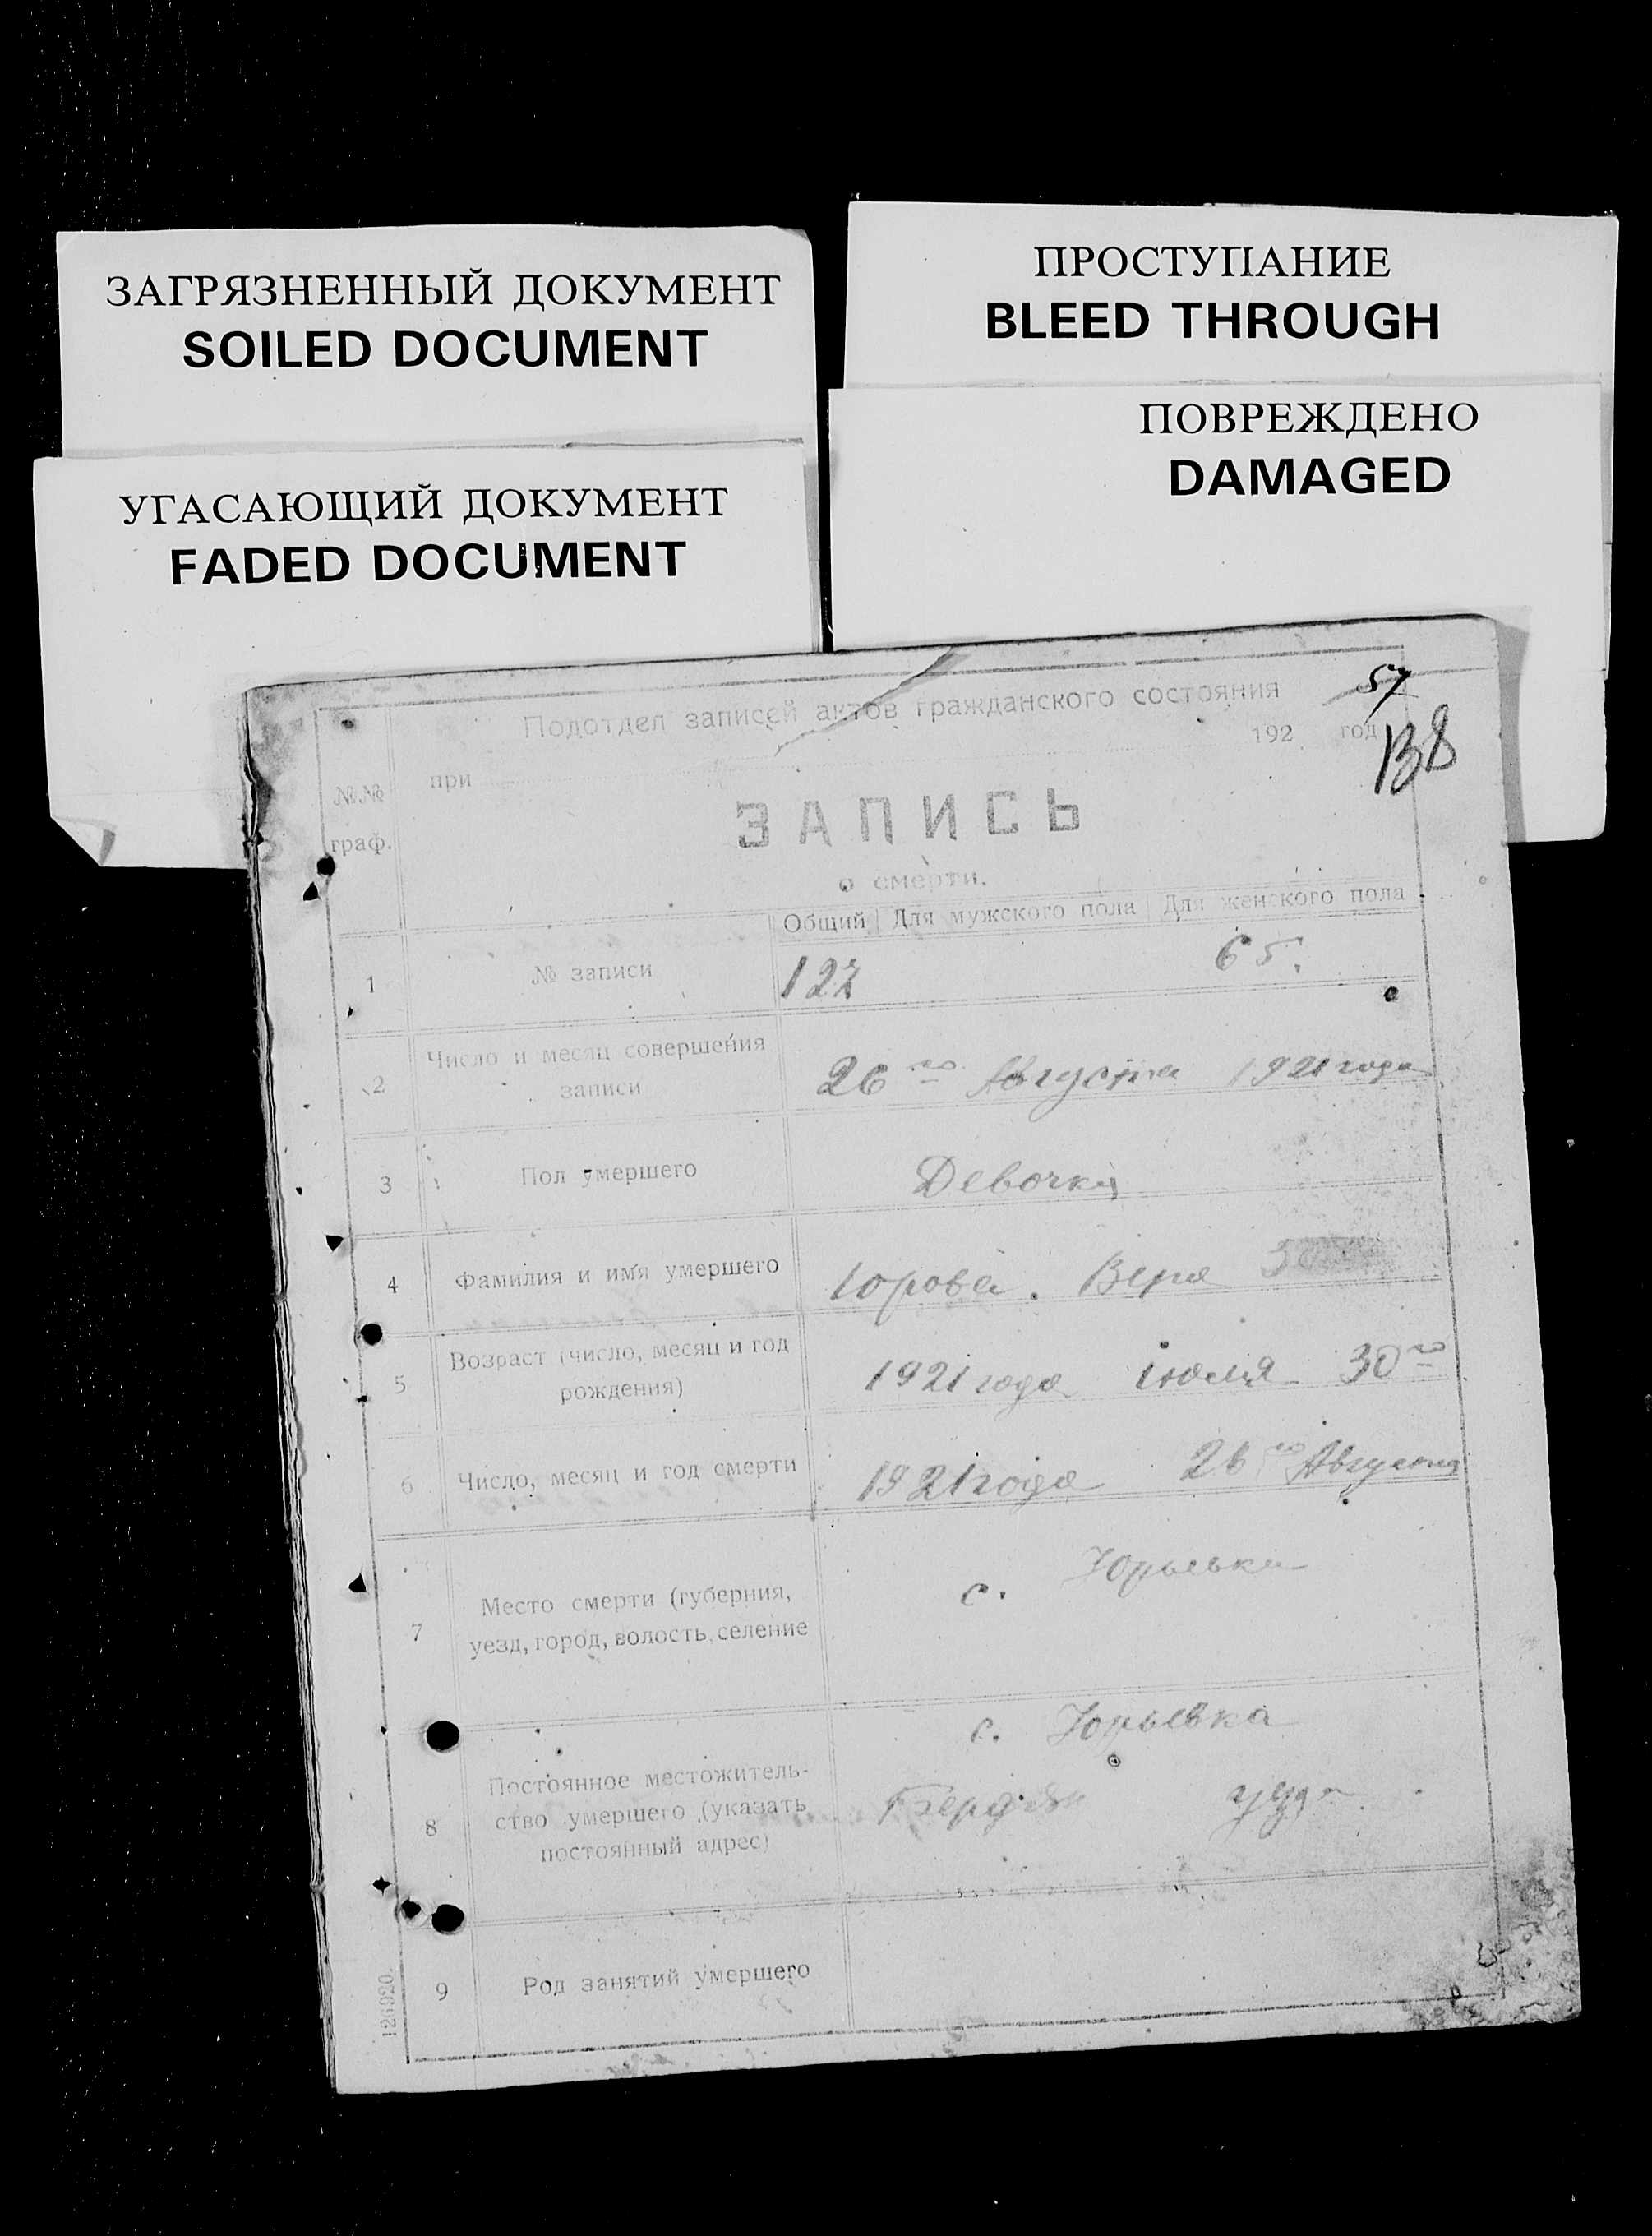 ЗАГРЯЗНЕННЫЙ ДОКУМЕНТ
SOILED DOCUMENT
ПРОСТУПАНИЕ
BLEED THROUGH
УГАСАЮЩИЙ ДОКУМЕНТ
FADED DOCUMENT
ПОВРЕЖДЕНО
DAMAGED
57
138
Подотдел записей актов гражданского состояния
при 192 год
№.№ граф.
ЗАПИСЬ
о смерти.
Общий Для мужского пола Для женского пола
1 № записи 122 65.
2 Число и месяц совершения записи 26го Августа 1921 года
3 Пол умершего Девочка
4 Фамилия и имя умершего Юрова. Вера
5 Возраст (число, месяц и год рождения) 1921 года июля 30го
6 Число, месяц и год смерти 1921 года 26го Августа
7 Место смерти (губерния, уезд, город, волость, селение с. Юрьевка
8 Постоянное местожитель-
ство умершего (указать
постоянный адрес)
с. Юрьевка
9 Род занятий умершего